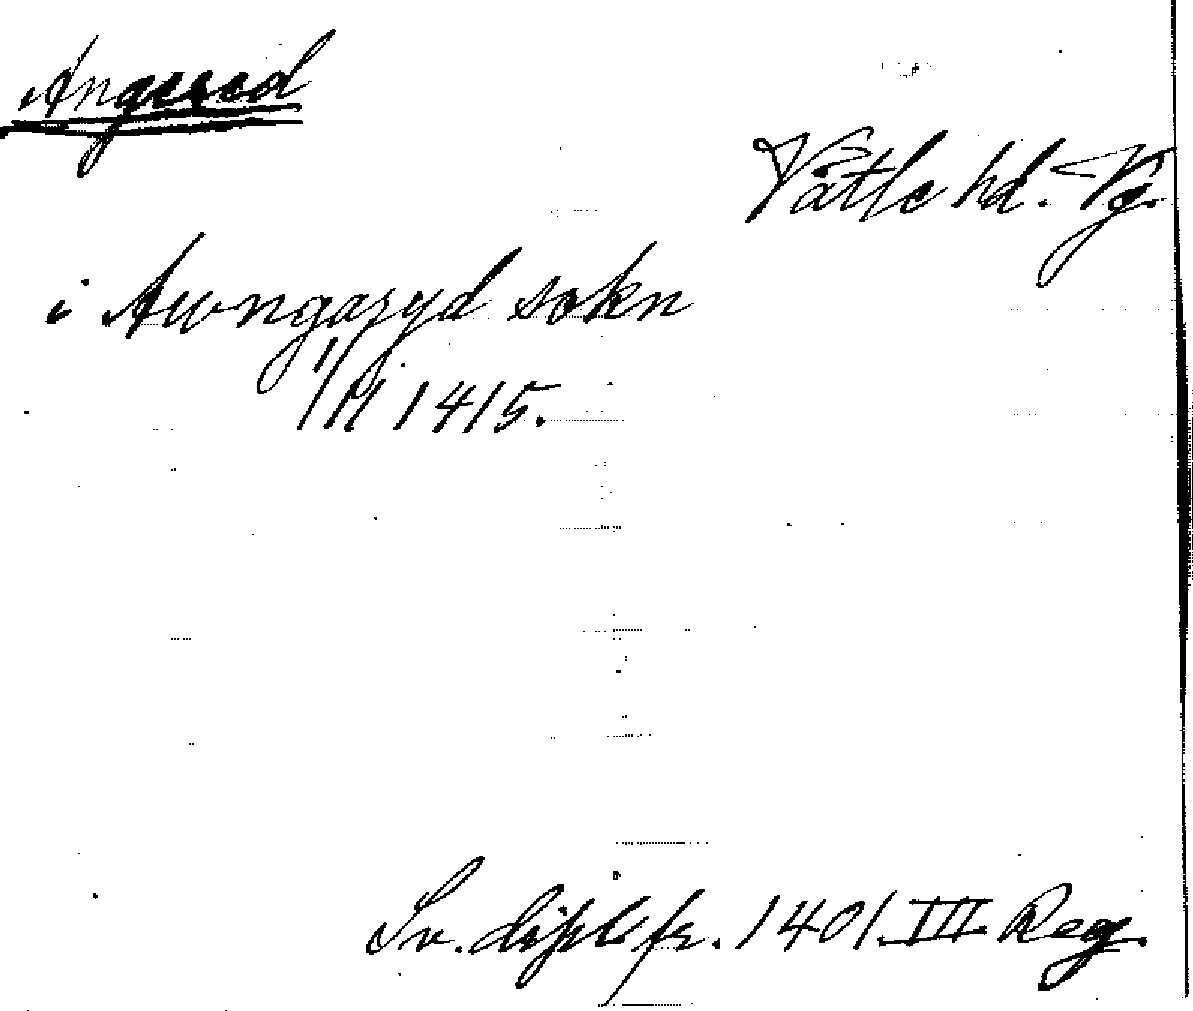 Angered
Vättle hd. Vg.
i Awngazryd sokn
1/11 1415.
Sv. dipl. fr. 1401 III Reg.